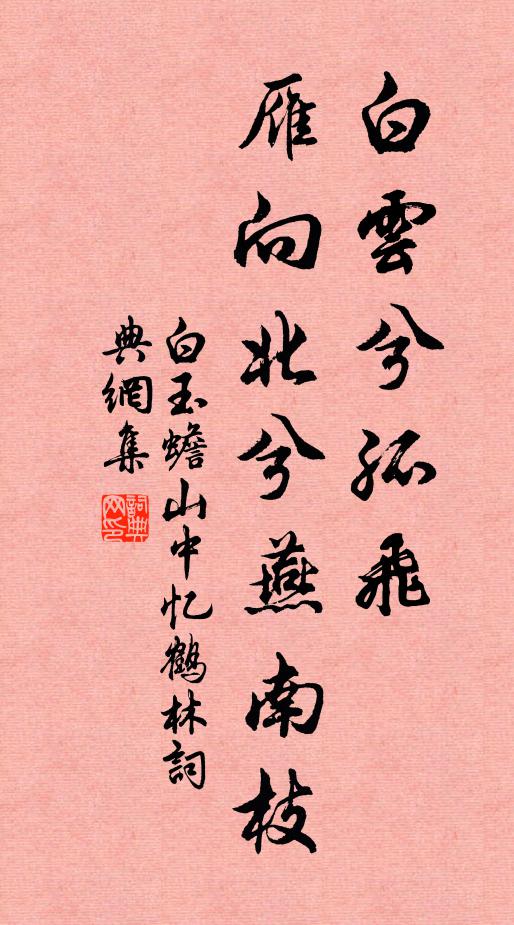 白雲兮孤飛
雁向北兮燕南枝
白玉蟾山中忆鶴林詞
典網集
詞典网印